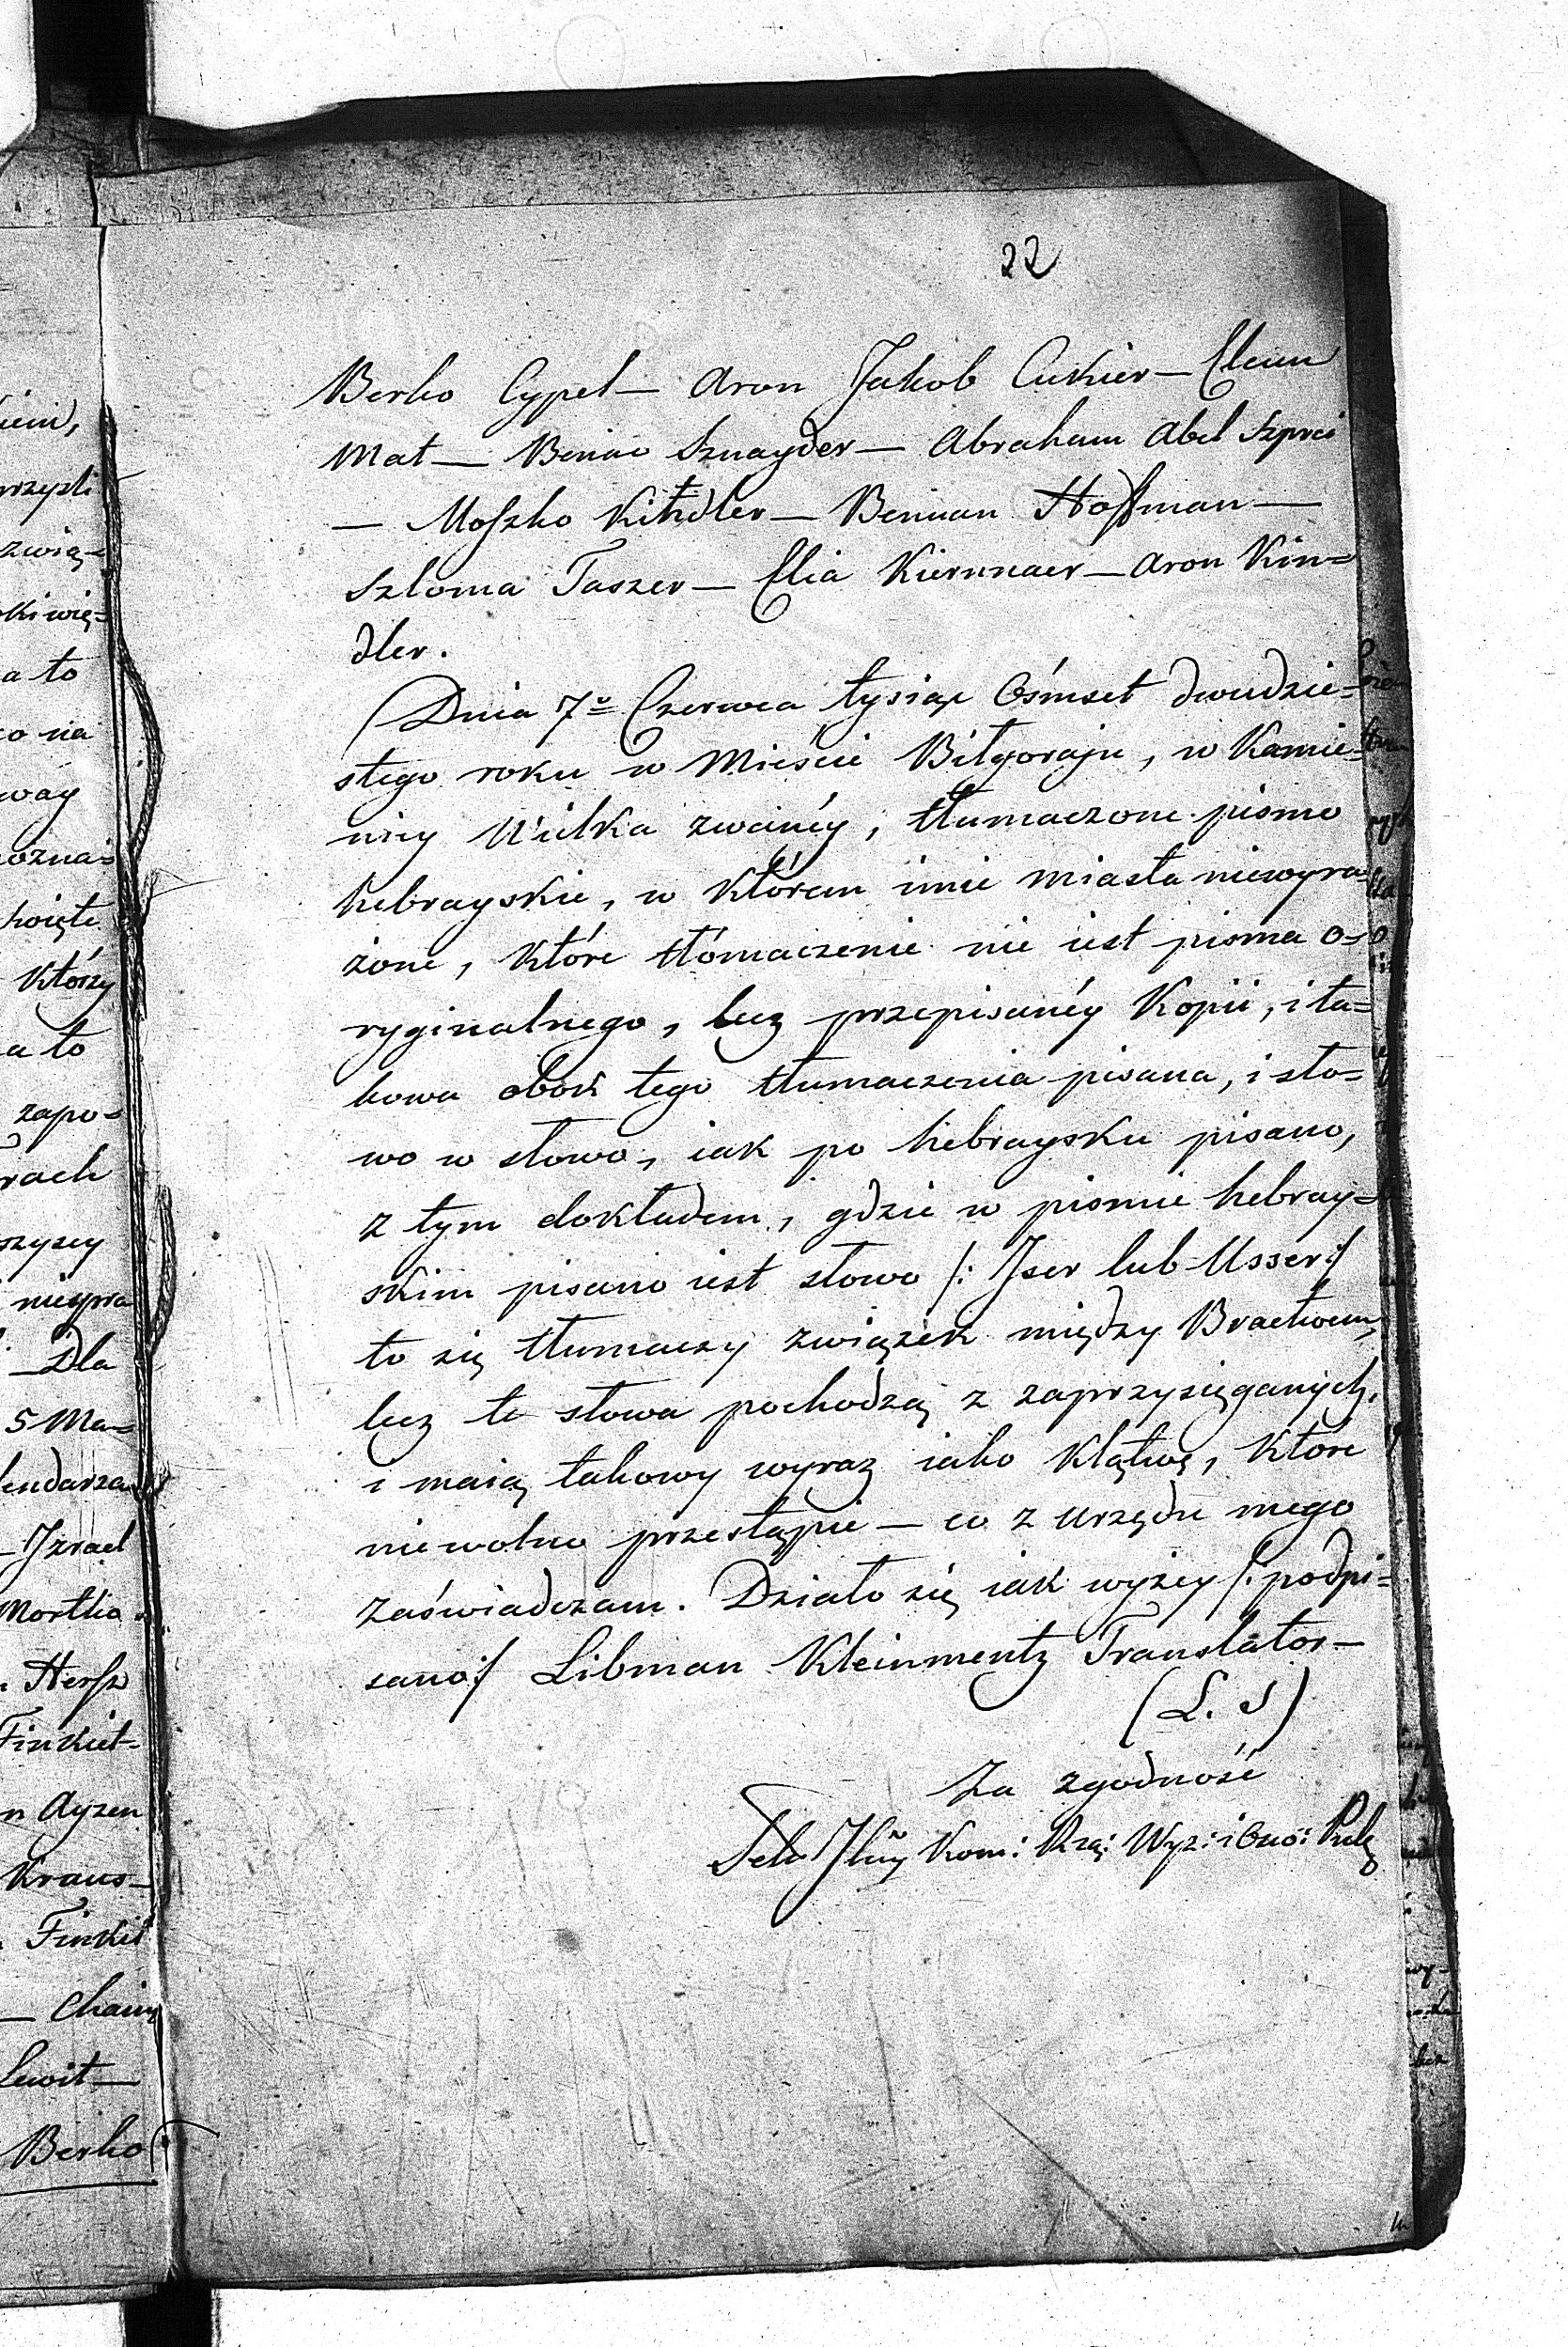 22
Berko Cypel — Aron Jakob Cukier — Eleim
Mat — Beniac Sznayder — Abraham Abel Szprei
— Moszko Kindler — Beniman Hoffman —
Szloma Taszer — Elia Kiernnaer — Aron Kin=
dler.
Dnia 7º Czerwca tysiąc Ośmset dwudzie=
stego roku w Mieście Biłgoraju, w Kamie=
nicy Wielka zwanéy, tłumaczone pismo
hebrayskie, w którem imie miasta niewyra=
żone, które tłómaczenie nie iest pisma o=
ryginalnego, lecz przepisanéy Kopii, i ta=
kowa obok tego tłumaczenia pisana, i sło=
wo w słowo, iak po hebraysku pisano,
z tym dokładem, gdzie w pismie hebray=
skim pisano iest słowo /: Jser lub Usser :/
to się tłumaczy związek między Bractwem,
lecz te słowa pochodzą z zaprzysięganych,
i maią takowy wyraz iako klątwę, które
niewolno przestąpić — co z urzędu mego
zaświadczam. Działo się iak wyżey /: podpi=
sano :/ Libman Kleinmentz Translator —
(L. S)
Za zgodność
Kom: Rzą: Wyz: i Ośw: Pub
ieni,
rzyszli
zwią=
okiwię=
a to
co na
way
pozna=
święte
którzy
a to
zapo=
rach
szyscy
niespra
— Dla
5 Ma=
lendarza
— Jzrael
Mortko
Hersz
Finkiel-
n Ayzen
Kraus —
Finkiel
— Chaim
Lewit —
Berko